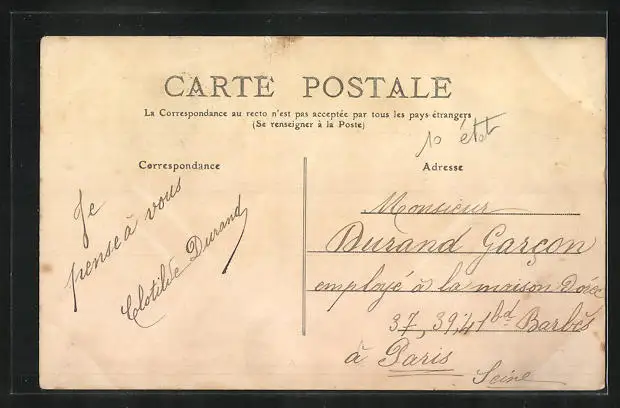 CARTE POSTALE
La Correspondance au recto n'est pas acceptée par tous les pays étrangers
(Se renseigner à la Poste)
10 état
Correspondance
Je
pense à vous
Clotilde Durand
Adresse
Monsieur
Durand Garçon
employé à la maison Dorée
37, 39, 41 bd Barbès
à Paris
Seine